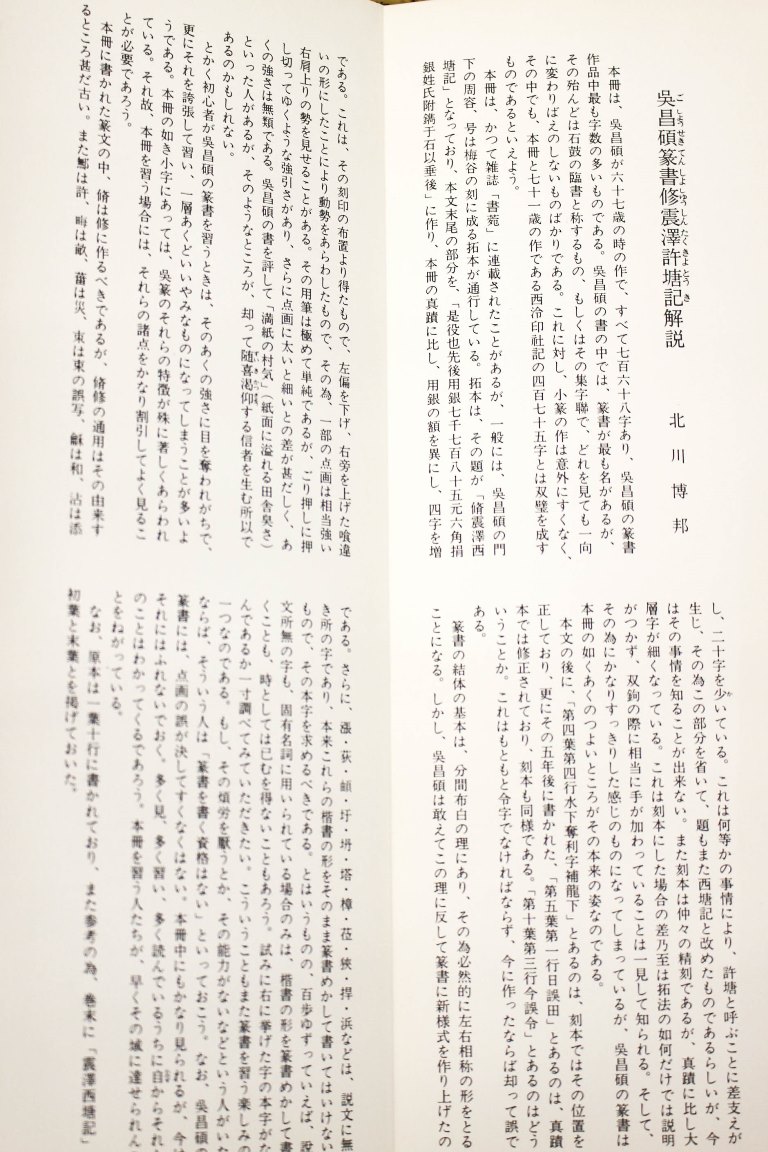 呉昌碩篆書修震澤許塘記解説
ごしょうせきてんしょしゅうしんたくきょとうき
北川博邦
本冊は、呉昌碩が六十七歳の時の作で、すべて七百六十八字あり、呉昌碩の篆書
作品中最も字数の多いものである。呉昌碩の書の中では、篆書が最も名があるが、
その殆んどは石鼓の臨書と称するもの、もしくはその集字聯で、どれを見ても一向
に変わりばえのしないものばかりである。これに対し、小篆の作は意外にすくなく、
その中でも、本冊と七十一歳の作である西泠印社記の四百七十五字とは双璧を成す
ものであるといえよう。
本冊は、かつて雑誌「書菀」に連載されたことがあるが、一般には、呉昌碩の門
下の周容、号は梅谷の刻に成る拓本が通行している。拓本は、その題が「脩震澤西
塘記」となっており、本文末尾の部分を、「是役也先後用銀七千七百八十五元六角捐
銀姓氏附鐫于石以垂後」に作り、本冊の真蹟に比し、用銀の額を異にし、四字を増
し、二十字を少いている。これは何等かの事情により、許塘と呼ぶことに差支えが
生じ、その為この部分を省いて、題もまた西塘記と改めたものであるらしいが、今
はその事情を知ることが出来ない。また刻本は仲々の精刻であるが、真蹟に比し大
層字が細くなっている。これは刻本にした場合の差乃至は拓法の如何だけでは説明
がつかず、双鉤の際に相当に手が加わっていることは一見して知られる。そして、
その為にかなりすっきりした感じのものになってしまっているが、呉昌碩の篆書は
本冊の如くあくのつよいところがその本来の姿なのである。
本文の後に、「第四葉第四行水下奪利字補龍下」とあるのは、刻本ではその位置を
正しており、更にその五年後に書かれた、「第五葉第一行日誤田」とあるのは、真蹟
本では修正されており、刻本も同様である。「第十葉第三行今誤令」とあるのはどう
いうことか。これはもともと令字でなければならず、今に作ったならば却って誤で
ある。
篆書の結体の基本は、分間布白の理にあり、その為必然的に左右相称の形をとる
ことになる。しかし、呉昌碩は敢えてこの理に反して篆書に新様式を作り上げたの
である。これは、その刻印の布置より得たもので、左偏を下げ、右旁を上げた喰違
いの形にしたことにより動勢をあらわしたもので、その為、一部の点画は相当強い
右肩上りの勢を見せることがある。その用筆は極めて単純であるが、ごり押しに押
し切ってゆくような強引さがあり、さらに点画に太いと細いとの差が甚だしく、あ
くの強さは無類である。呉昌碩の書を評して「満紙の村気」(紙面に溢れる田舎臭さ)
といった人があるが、そのようなところが、却って随喜渇仰する信者を生む所以で
あるのかもしれない。
とかく初心者が呉昌碩の篆書を習うときは、そのあくの強さに目を奪われがちで、
更にそれを誇張して習い、一層あくどいいやみなものになってしまうことが多いよ
うである。本冊の如き小字にあっては、呉篆のそれらの特徴が殊に著しくあらわれ
ている。それ故、本冊を習う場合には、それらの諸点をかなり割引してよく見るこ
とが必要であろう。
本冊に書かれた篆文の中、脩は修に作るべきであるが、脩修の通用はその由来す
るところ甚だ古い。また鄦は許、畮は畝、菑は災、朿は束の誤写、龢は和、沾は添
である。さらに、漲・荻・頔・圩・坍・塔・樟・莅・狹・捍・浜などは、説文に無
き所の字であり、本来これらの楷書の形をそのまま篆書めかして書いてはいけない
もので、その本字を求めるべきである。とはいうものの、百歩ゆずっていえば、說
文所無の字も、固有名詞に用いられている場合のみは、楷書の形を篆書めかして書
くことも、時としては已むを得ないこともあろう。試みに右に挙げた字の本字がな
んであるか一寸調べてみていただきたい。こういうこともまた篆書を習う楽しみの
一つなのである。もし、その煩労を厭うとか、その能力がないなどという人がいた
ならば、そういう人は「篆書を書く資格はない」といっておこう。なお、呉昌碩の
篆書には、点画の誤が決してすくなくはない。本冊中にもかなり見られるが、今は
それにはふれないでおく。多く見、多く習い、多く読んでいるうちに自からそれら
のことはわかってくるであろう。本冊を習う人たちが、早くその域に達せられんこ
とをねがっている。
なお、原本は一葉十行に書かれており、また参考の為、巻末に「震澤西塘記」
初葉と末葉とを掲げておいた。